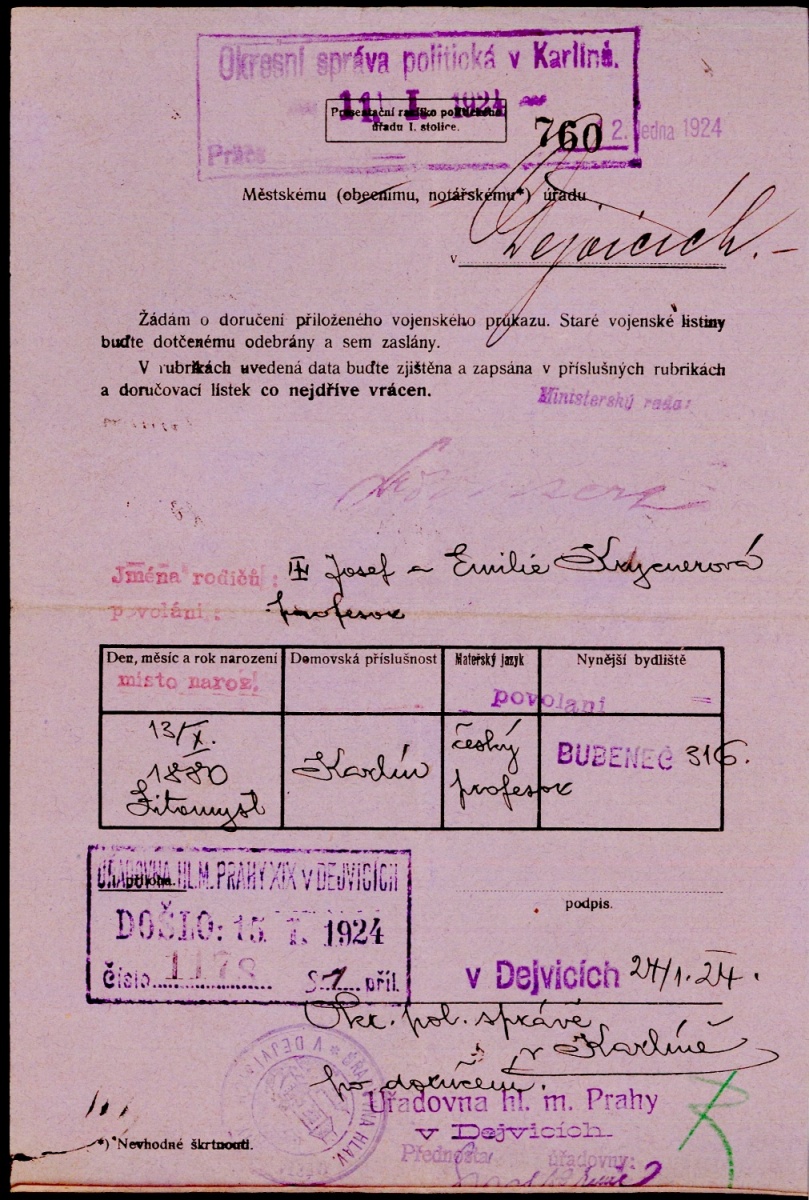 Okresní správa politická v Karlíně.
11. I. 1924
Presentační razítko politického
úřadu I. stolice.
760
2. ledna 1924
Městskému (obecnímu, notářskému*) úřadu
v Dejvicích.
Žádám o doručení přiloženého vojenského průkazu. Staré vojenské listiny
buďte dotčenému odebrány a sem zaslány.
V rubrikách uvedená data buďte zjištěna a zapsána v příslušných rubrikách
a doručovací lístek co nejdříve vrácen.
Ministerský rada:
Jména rodičů: Josef a Emilie
povolání: profesor
Den, měsíc a rok narození Domovská příslušnost Mateřský jazyk Nynější bydliště
místo naroz. povolání =
13/X. 1880 Litomyšl Karlín český profesor BUBENEČ 316.
ÚŘADOVNA HL. M. PRAHY XIX V DEJVICÍCH
příloha.
DOŠLO: 15. I. 1924
Číslo 1178 S 1 příl.
podpis.
v Dejvicích 24/1.24.
Okr. pol. správě
v Karlíně
po doručení.
Úřadovna hl. m. Prahy
v Dejvicích
Přednosta úřadovny:
*) Nevhodné škrtnouti.